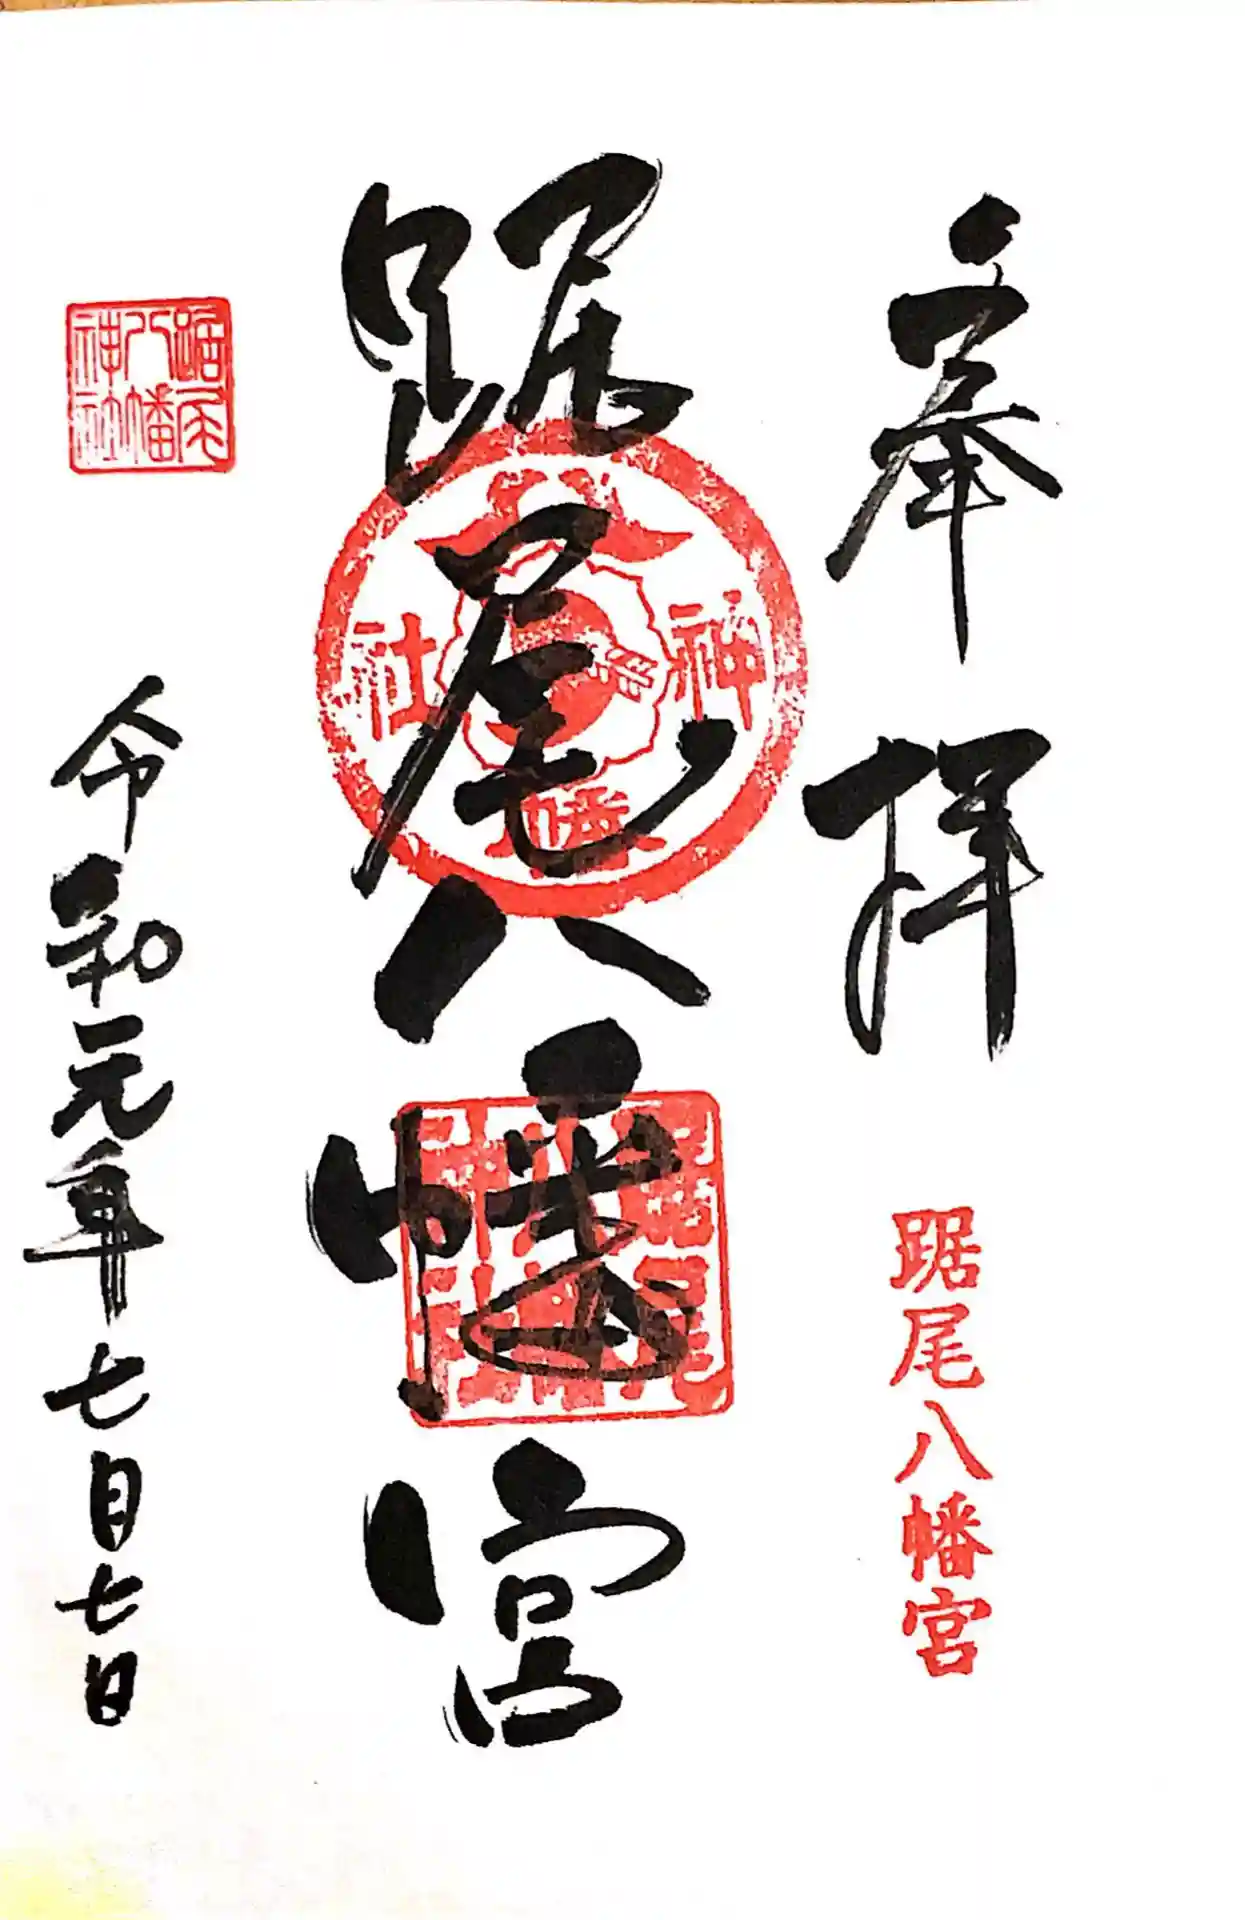 奉拝
踞尾八幡宮
踞尾八幡宮
神
社
幡
踞尾
八幡
神社
令和元年七月七日